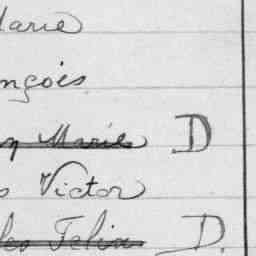 Marie
nçois
n Marie D
s Victor
les Felix D.